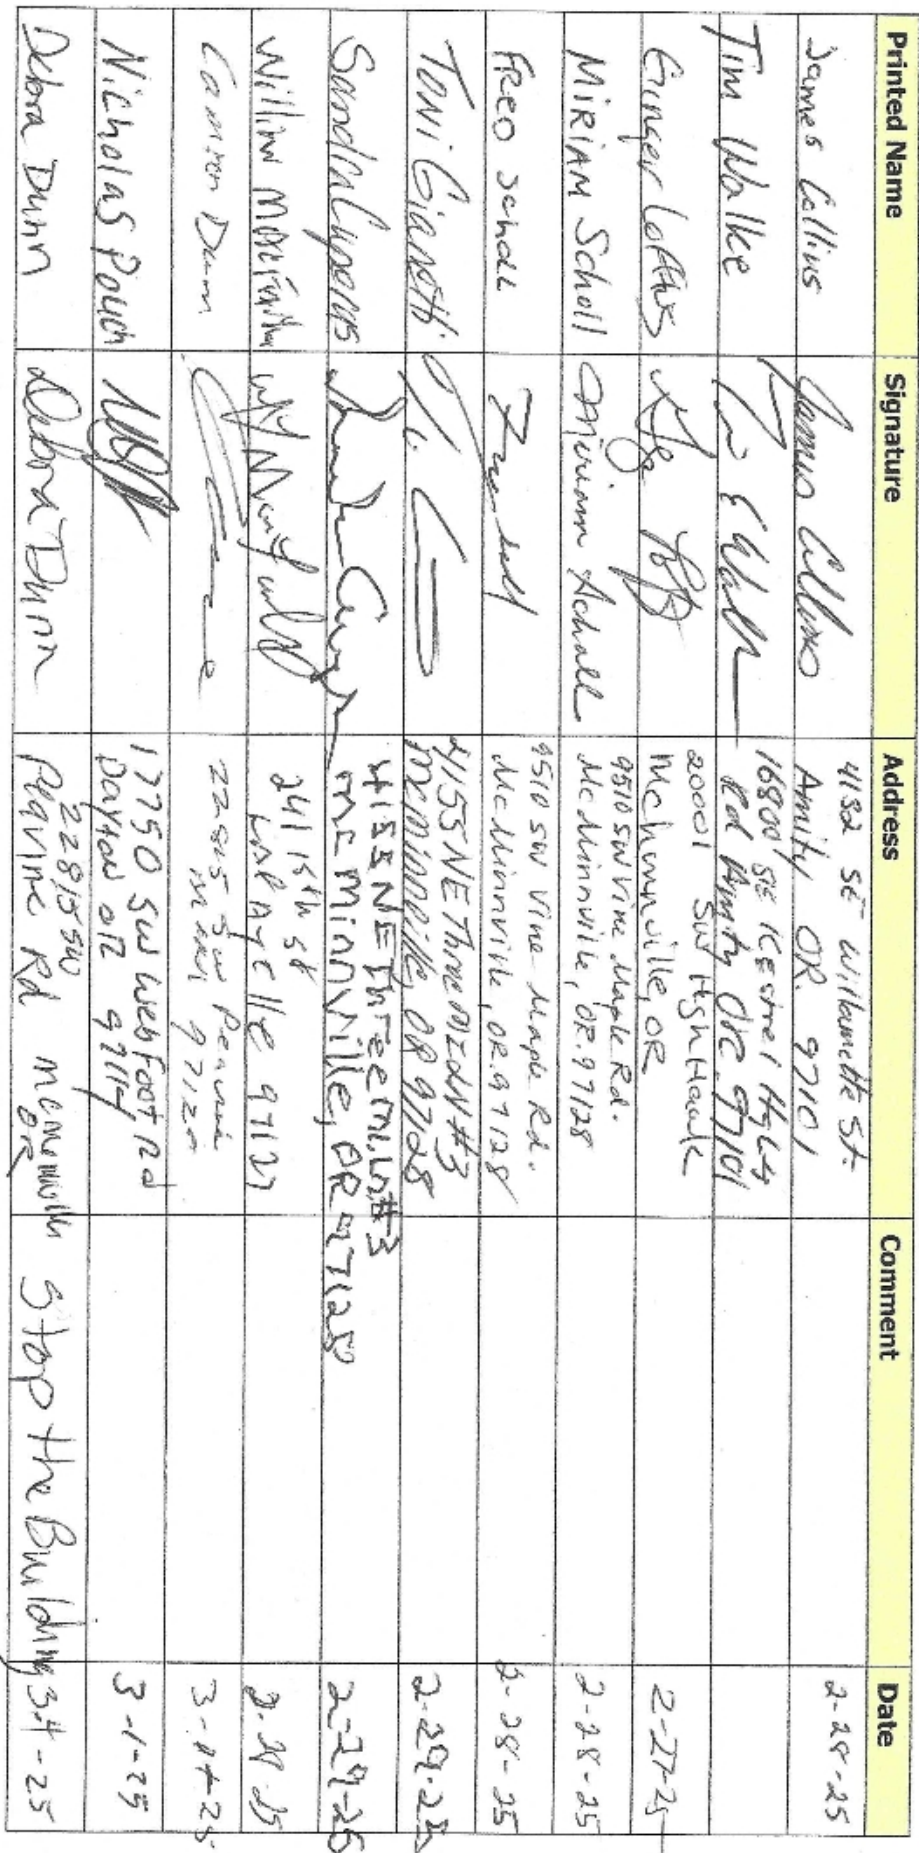 Printed Name Signature Address Comment Date
James Collins James Collins 4132 SE Willamette St. Amity, OR 97101 2-28-25
Tim Walke 16800 SE Kestrel Rd Amity Ore 97101
Ginger Loftus 20001 SW High Hawk McMinnville, OR 2-27-25
MiRiAM Scholl Miriam Scholl 9510 SW Vine Maple Rd. McMinnville, OR. 97128 2-28-25
FReD 9510 SW Vine Maple Rd. McMinnville, OR. 97128 2-28-25
Toni 4155 NE Three Mi Ln #3 McMinnville, OR 97128 2-29-25
Sandra 4155 NE Three mi. Ln #3 mc Minnville, OR 97128 2-29-25
William 241 15th st Lafayette 97127 25
Camron Dunn 22815 SW Peavine 97128 3-1-25
Nicholas Pouch 17750 SW Web Foot Rd Dayton OR 97114 3-1-25
Debra Dunn Debra Dunn 22815 SW Peavine Rd McMinnville OR Stop the Building 3-1-25